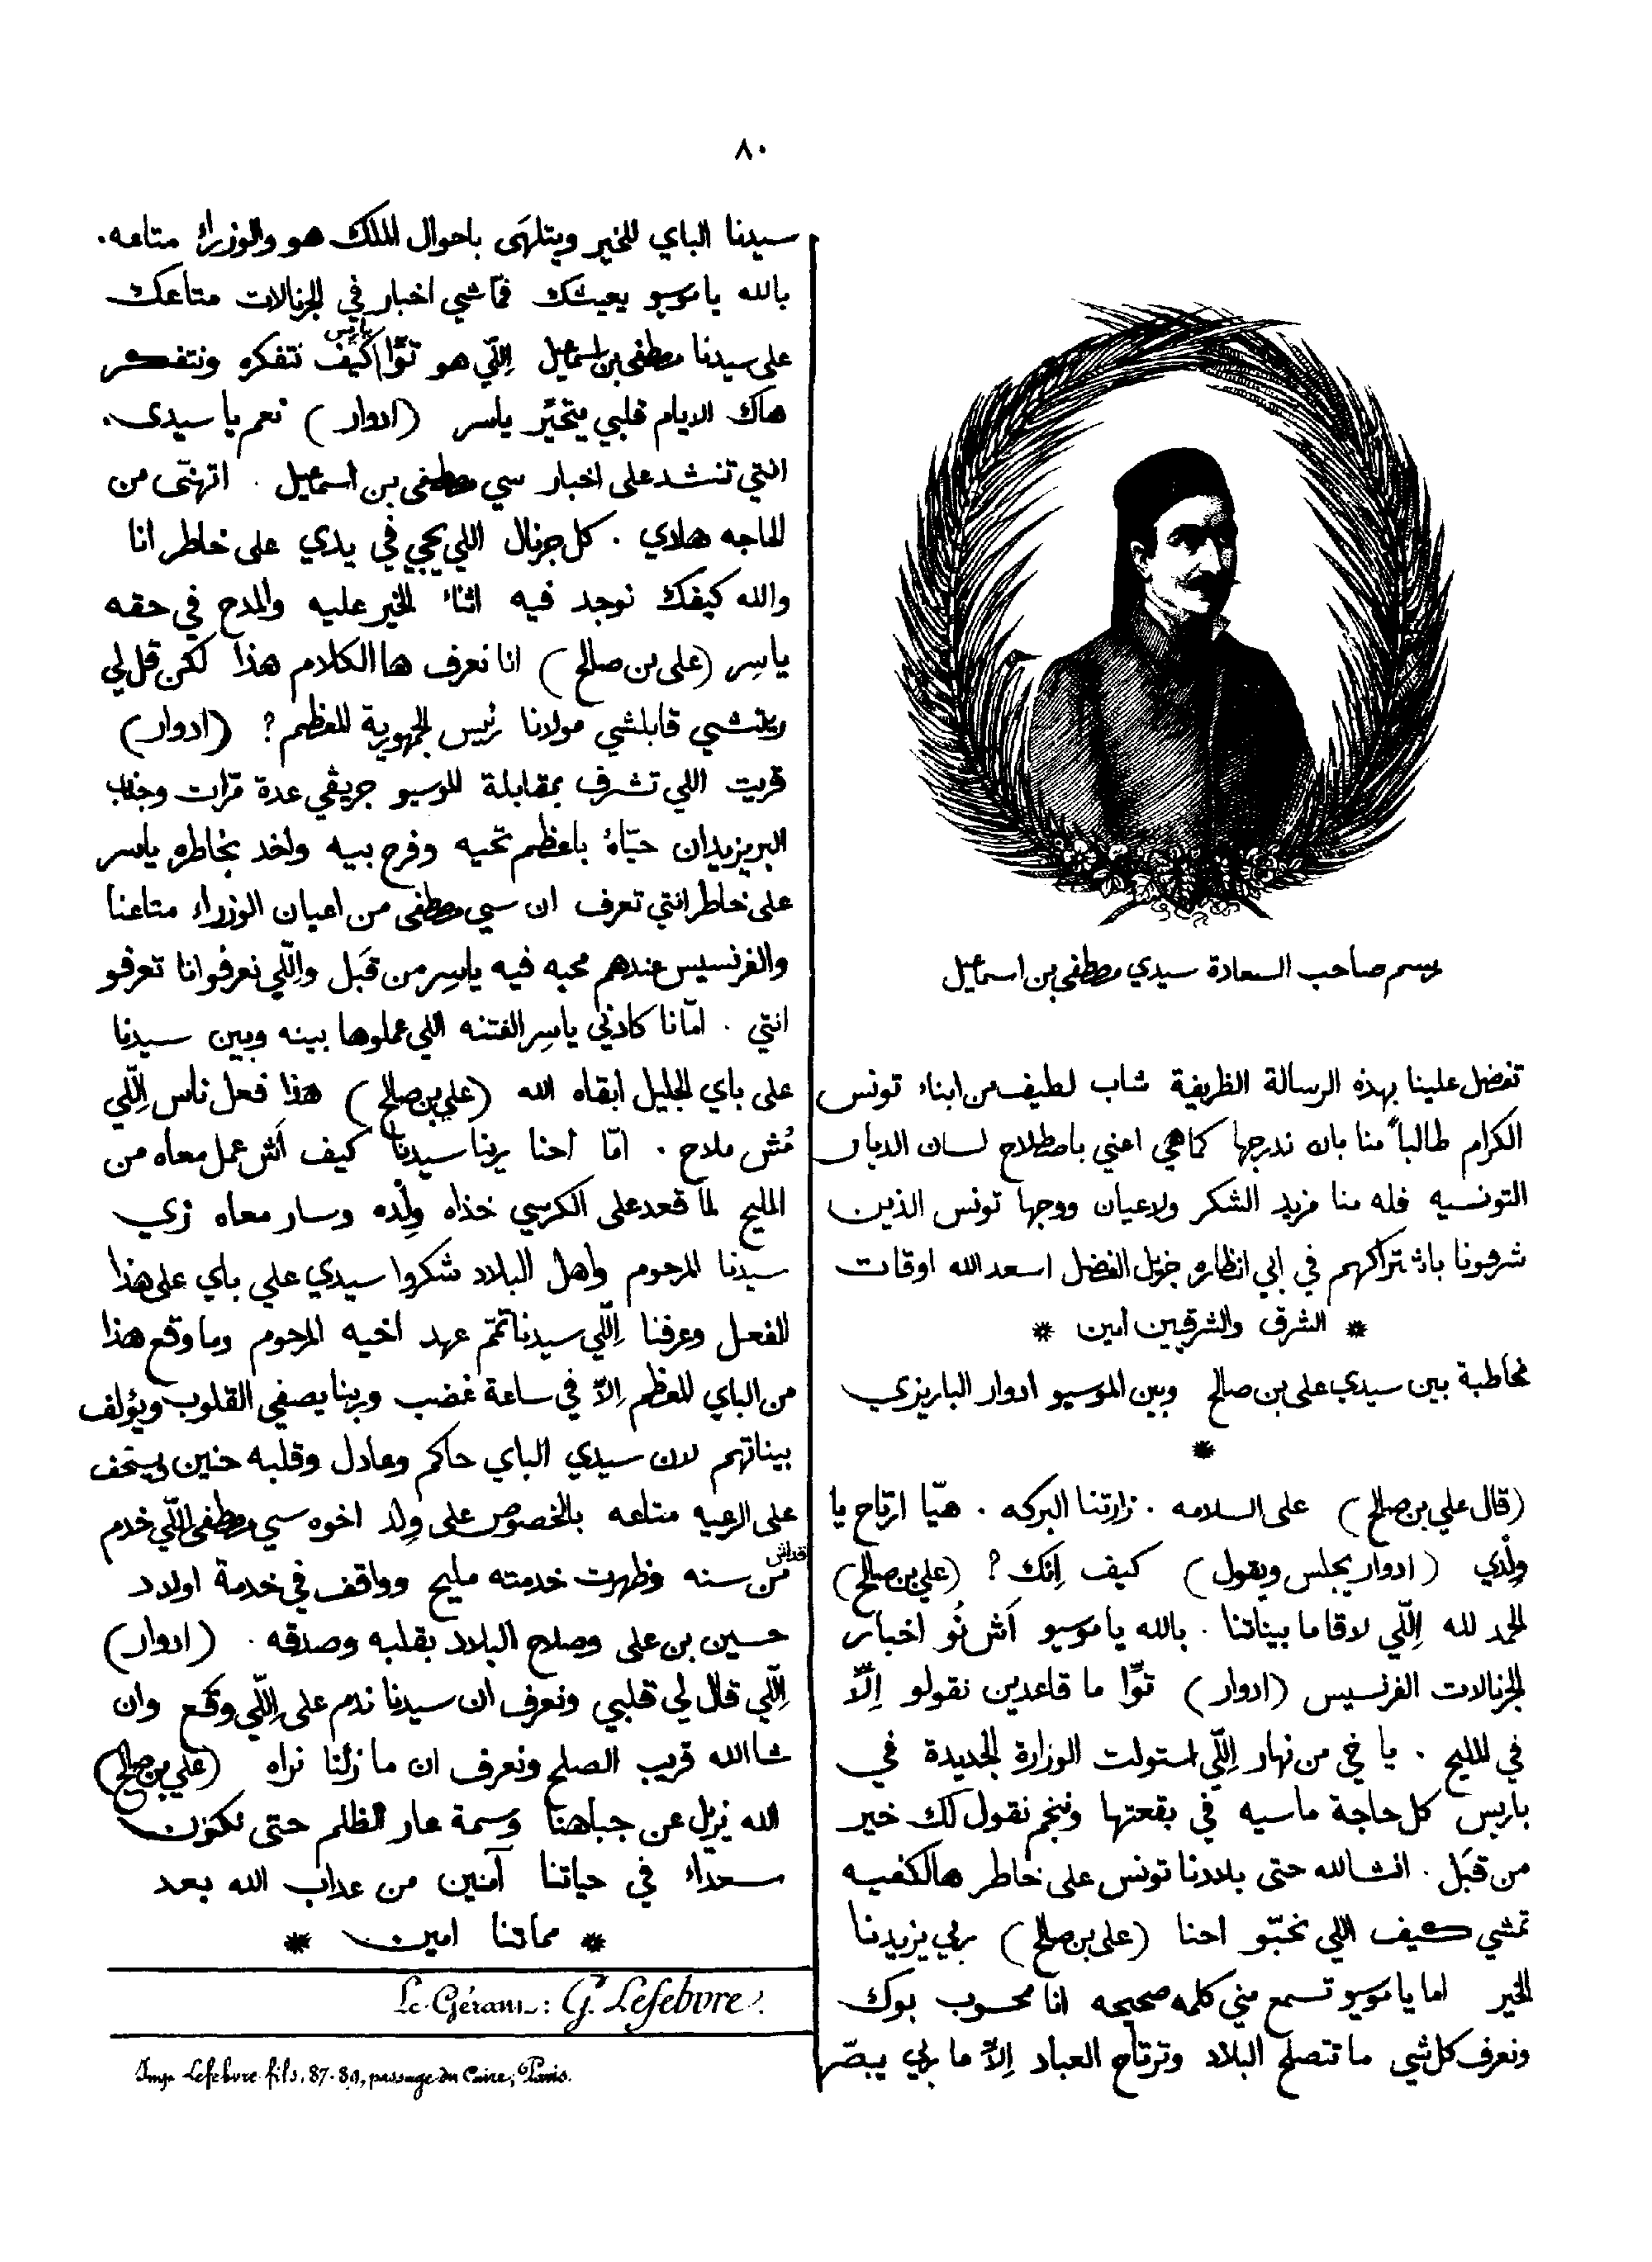 ٨٠
رسم صاحب السعادة سيدي مصطفى بن اسماعيل
تفضل علينا بهذه الرسالة الظريفة شاب لطيف من ابناء تونس
الكرام طالباً منا بان ندرجها كما هي اعني باصطلاح لسان الديار
التونسيه فله منا مزيد الشكر ولاعيان ووجها تونس الذين
شرفونا باشتراكهم في ابي نظاره جزيل الفضل اسعد الله اوقات
* الشرق والشرقيين امين *
مخاطبة بين سيدي علي بن صالح وبين الموسيو ادوار الباريزي
*
(قال علي بن صالح) على السلامه . زارتنا البركه . هيّا ارتاح يا
وِلْدي (ادوار يجلس ويقول) كيف اِنّك ? (علي بن صالح)
الحمد لله اِللّي لاقا ما بيناتنا . بالله يا موسيو اَش نُو اخبار
الجرنالات الفرنسيس (ادوار) توّا ما قاعدين نقولو اِلّا
في المليح . يا خي من نهار اِللّي استولت الوزارة الجديدة في
باريس كل حاجة ماسيه في بقعتها ونجم نقول لك خير
من قبَل . انشالله حتى بلادنا تونس على خاطر هالكفيه
تمشي كيف اللي نحبّو احنا (علي بن صالح) ربي يزيدنا
الخير اما يا موسيو تسمع مني كلمه صحيحه انا محسوب بوك
ونعرف كل شي ما تتصلح البلاد وترتاح العباد اِلاّ ما ربي يبصّر
سيدنا الباي للخير ويتلهَى باحوال الملك هو والوزراء متاعه .
بالله يا موسيو يعيشك فمّاشي اخبار في الجرنالات متاعك
على سيدنا مصطفى بن اسماعيل اِللّي هو توّا باريس كيف نتفكره ونتفكر
هاك الايام قلبي يتحيّر ياسر (ادوار) نعم يا سيدي .
انتي تنشد على اخبار سي مصطفى بن اسماعيل . اتهنّى من
الحاجه هاذي . كل جرنال اللي يجي في يدي على خاطر انا
والله كيفك نوجد فيه اثناء الخير عليه والمدح في حقه
ياسِر (علي بن صالح) انا نعرف ها الكلام هذا لكن قل لي
قابلشي مولانا رئيس الجمهورية المعظم ? (ادوار)
قريت اللي تشرف بمقابلة الموسيو جريفي عدة مرّات وجناب
البريزيدان حيّاهُ باعظم تحيه وفرح بيه واخد بخاطره ياسر
على خاطر انتي تعرف ان سي مصطفى من اعيان الوزراء متاعنا
والفرنسيس عندهم محبه فيه ياسِر من قبَل واِللّي نعرفو انا تعرفو
انتي . امّا انا كادني ياسِر الفتنه اللي عملوها بينه وبين سيدنا
علي باي الجليل ابقاه الله (علي بن صالح) هذا فعل ناس اِللّي
مُش ملاح . امّا احنا رينا سيدنا كيف اَش عمل معاه من
المليح لمّا قعد على الكرسي خذاه وِلْده وسار معاه زي
سيدنا المرحوم واهل البلاد شكروا سيدي علي باي على هذا
الفعل وعرفنا اِللّي سيدنا تمّم عهد اخيه المرحوم وما وقع هذا
من الباي المعظم اِلاّ في ساعة غضب وربنا يصفي القلوب ويؤلف
بيناتهم لان سيدي الباي حاكم وعادل وقلبه حنين
على الرعيه متاعه بالخصوص على وِلد اخوه سي مصطفى اللّي خدم
قداش من سنه وظهرت خدمته مليح وواقف في خدمة اولاد
حسين بن علي وصلاح البلاد بقلبه وصدقه . (ادوار)
اِللّي قال لي قلبي ونعرف ان سيدنا ندم على اِللّي وقع وان
شا الله قريب الصلح ونعرف ان ما زلنا نراه (علي بن صالح)
الله يزيل عن جباهنا وسمة عار الظلم حتى نكون
سعداء في حياتنا آمنين من عذاب الله بعد
* مماتنا امين *
Le Gérant : G. Lefebvre.
Imp. Lefebvre fils, 87-89, passage du Caire, Paris.